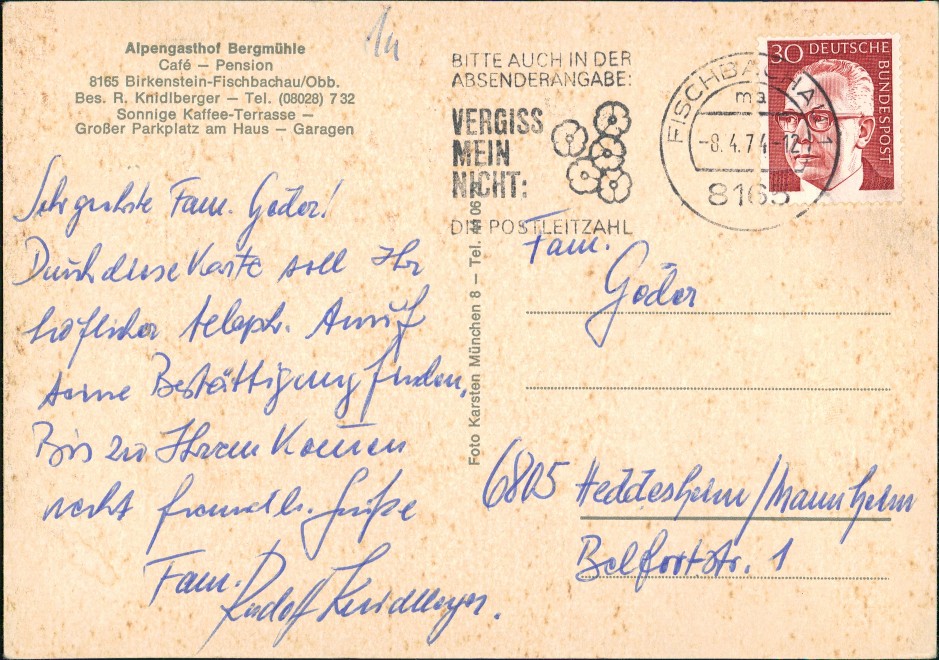 1u
Alpengasthof Bergmühle
Café – Pension
8165 Birkenstein-Fischbachau/Obb.
Bes. R. Knidlberger – Tel. (08028) 7 32
Sonnige Kaffee-Terrasse –
Großer Parkplatz am Haus – Garagen
BITTE AUCH IN DER
ABSENDERANGABE:
VERGISS
MEIN
NICHT:
DIE POSTLEITZAHL
FISCHBACHAU 1
ma
-8.4.74-12
8165
30 DEUTSCHE
BUNDESPOST
Sehr geehrte Fam. Godor!
Durch diese Karte soll Ihr
höflicher teleph. Anruf
seine Bestättigung finden,
Bis zu Ihrem Kommen
recht freundlh. Grüße
Fam. Rudolf Knidlberger.
Foto Karsten München 8 – Tel. 44 06
Fam.
Godor
6805 Heddesheim/Mannheim
Belfortstr. 1